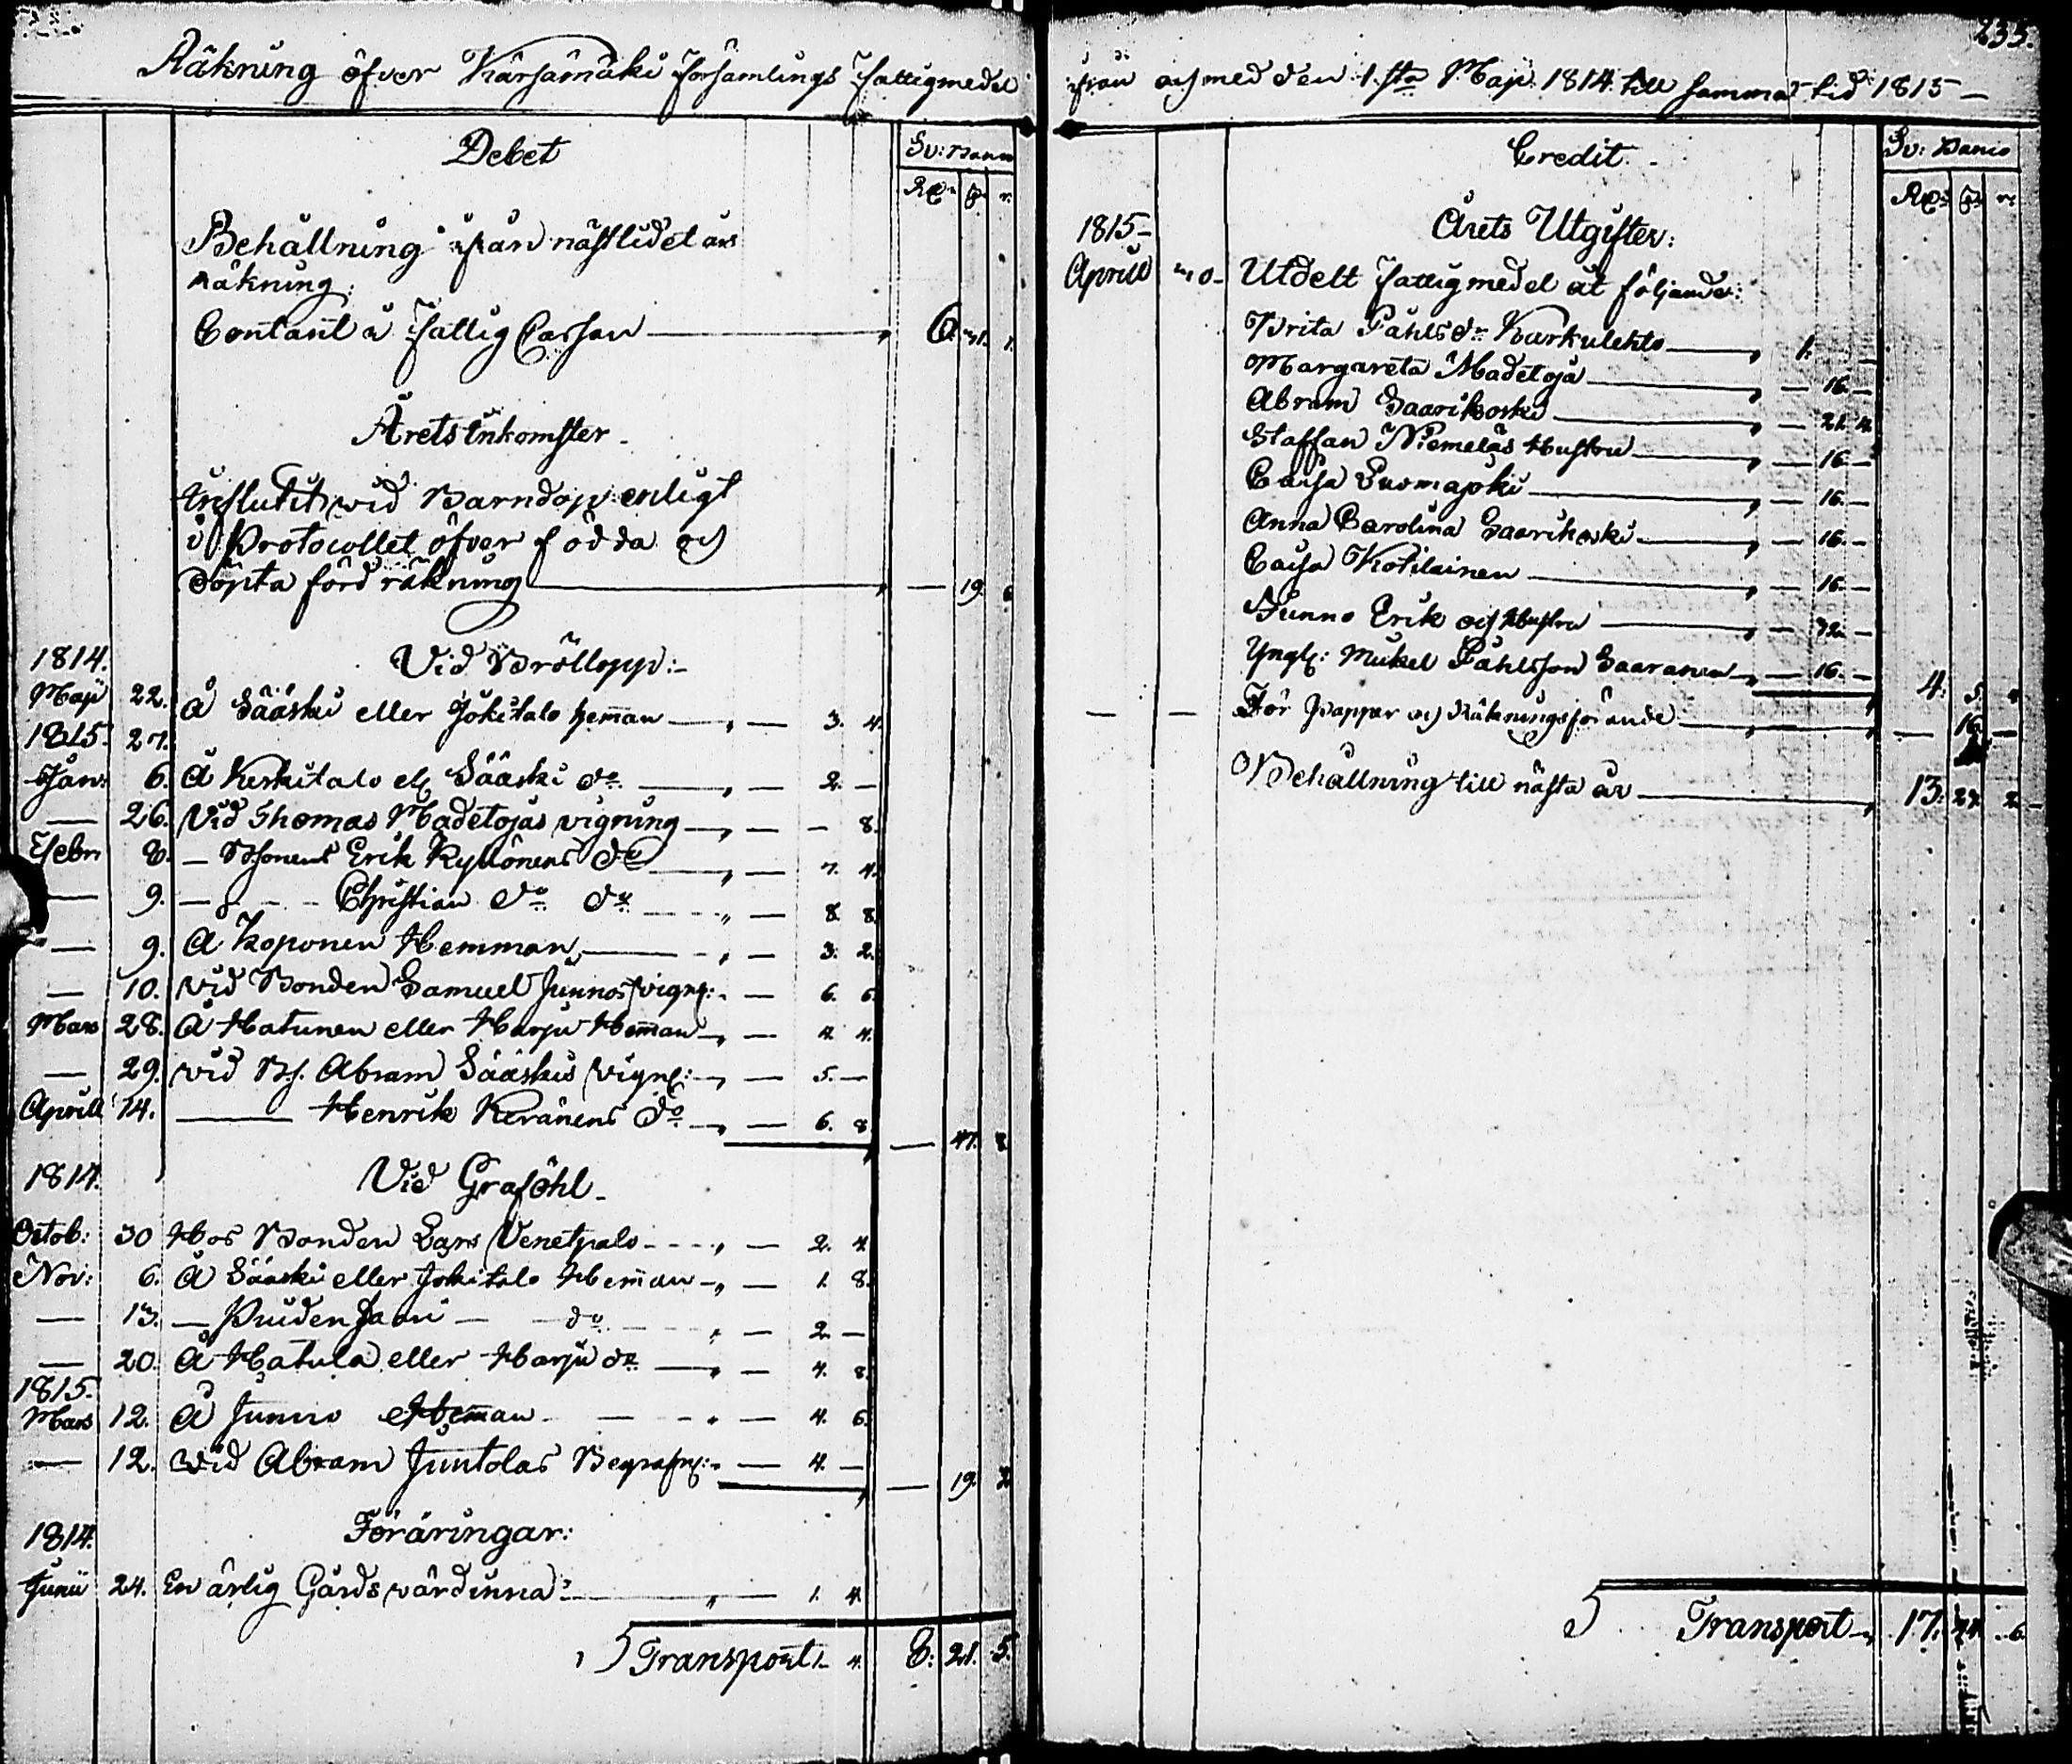 235.
Räkning öfver Kärsämäki Församlings Fattigmedel
från och med den 1sta Maji 1814 till samma tid 1815 —
Debet
Sv: Banco
Rd. s. r.
Behållning ifrån nästlidet års
räkning:
Contant i Fattig Cassan — 6. 1.
Årets Inkomster
Influtit wid Barndop enligt
i Protocollet öfver födda och
döpta förd räkning — 19.
1814. Vid Bröllopp:
Maji 22. Å Sääski eller Jokitalo heman — 3. 4.
1815. 27.
Jan: 6. Å Keskitalo ell. Sääski do — 2. —
— 26. Vid Thomas Madetojas vigning — 8.
Febr. 8. — Bonens Erik Kyllönens do — 7. 4.
— 9. — Christian do do — 8. 8.
— 9. Å Koponen Hemman — 3. 2.
— 10. vid Bonden Samuel Junnos vign: — 6. 6.
Mars 28. Å Hatunen eller Harju Heman — 4. 4.
— 29. vid Abram Sääskis vign: — 5. —
Aprill 14. — Henrik Keränens do — 6. 8.
— 47. 8
1814. Vid Graföhl
Octob: 30 Hos Bonden Lars Venetpalo — 2. 4.
Nov: 6. Å Sääski eller Jokitalo Heman — 1. 8.
— 13. — do — 2. —
— 20. Å Hatula eller Harju do — 4. 8.
1815.
Mars 12. Å Junno Heman — 4. 6.
— 12. wid Abram Juntolas Begrafn: — 4. —
— 19. 2
1814. Föräringar:
Junii 24. En ärlig Gårdsvärdinna — 1. 4.
Transport 1. 4. 8: 21. 5.
Credit
Sv: Banco
Rd. s. r.
1815 — Årets Utgifter:
Aprill Utdelt Fattigmedel åt följande:
Brita Påhlsdr Kurkulehto — 1. —
Margareta Madetoja — 16. —
Abram Saarikoski — 21. 4.
Staffan Niemeläs Hustru — 16. —
Caisa Luomajoki — 16. —
Anna Carolina Saarikoski — 16. —
Caisa Kotilainen — 16. —
Junno Erik och Hustru — 32. —
Yngl: Mickel Påhlsson Saaranen — 16. — 4. 5. 4
— — För Papper och Räkningsförande — 16. —
Behållning till nästa år — 13. 2
Transport 17. 6.